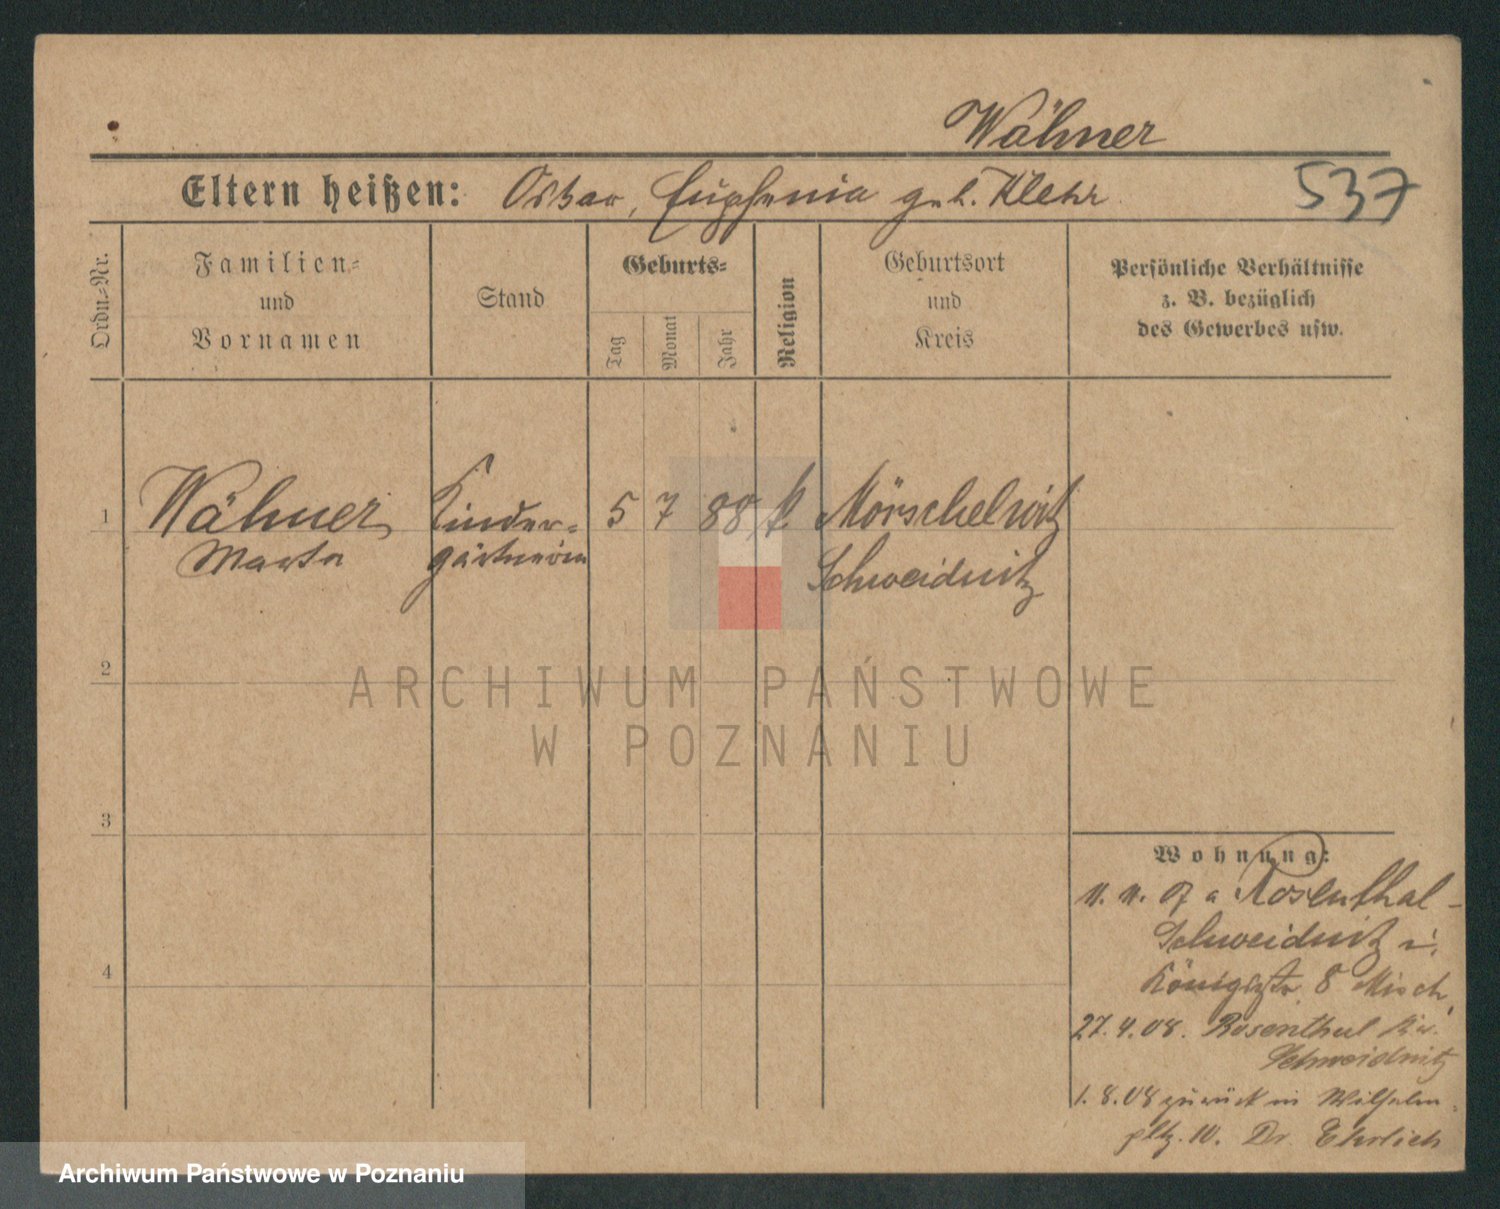 Wähner
Eltern heißen: Oskar, Eugenia geb. Klehr
537
Ordn.-Nr.
Familien-
und
Vornamen
Stand
Geburts-
Tag
Monat
Jahr
Religion
Geburtsort
und
Kreis
Persönliche Verhältnisse
z. B. bezüglich
des Gewerbes usw.
1
Wähner
Marta
Kinder-
gärtnerin
5 7 88 k
Mörschelwitz
Schweidnitz
2
3
4
Wohnung:
Rosenthal
Schweidnitz i.
Königstr. 8 Misch
27.4.08. Rosenthal Kr.
Schweidnitz
1.8.08 zurück in Wilhelm
pltz. 10. Dr. Ehrlich
ARCHIWUM PAŃSTWOWE
W POZNANIU
Archiwum Państwowe w Poznaniu